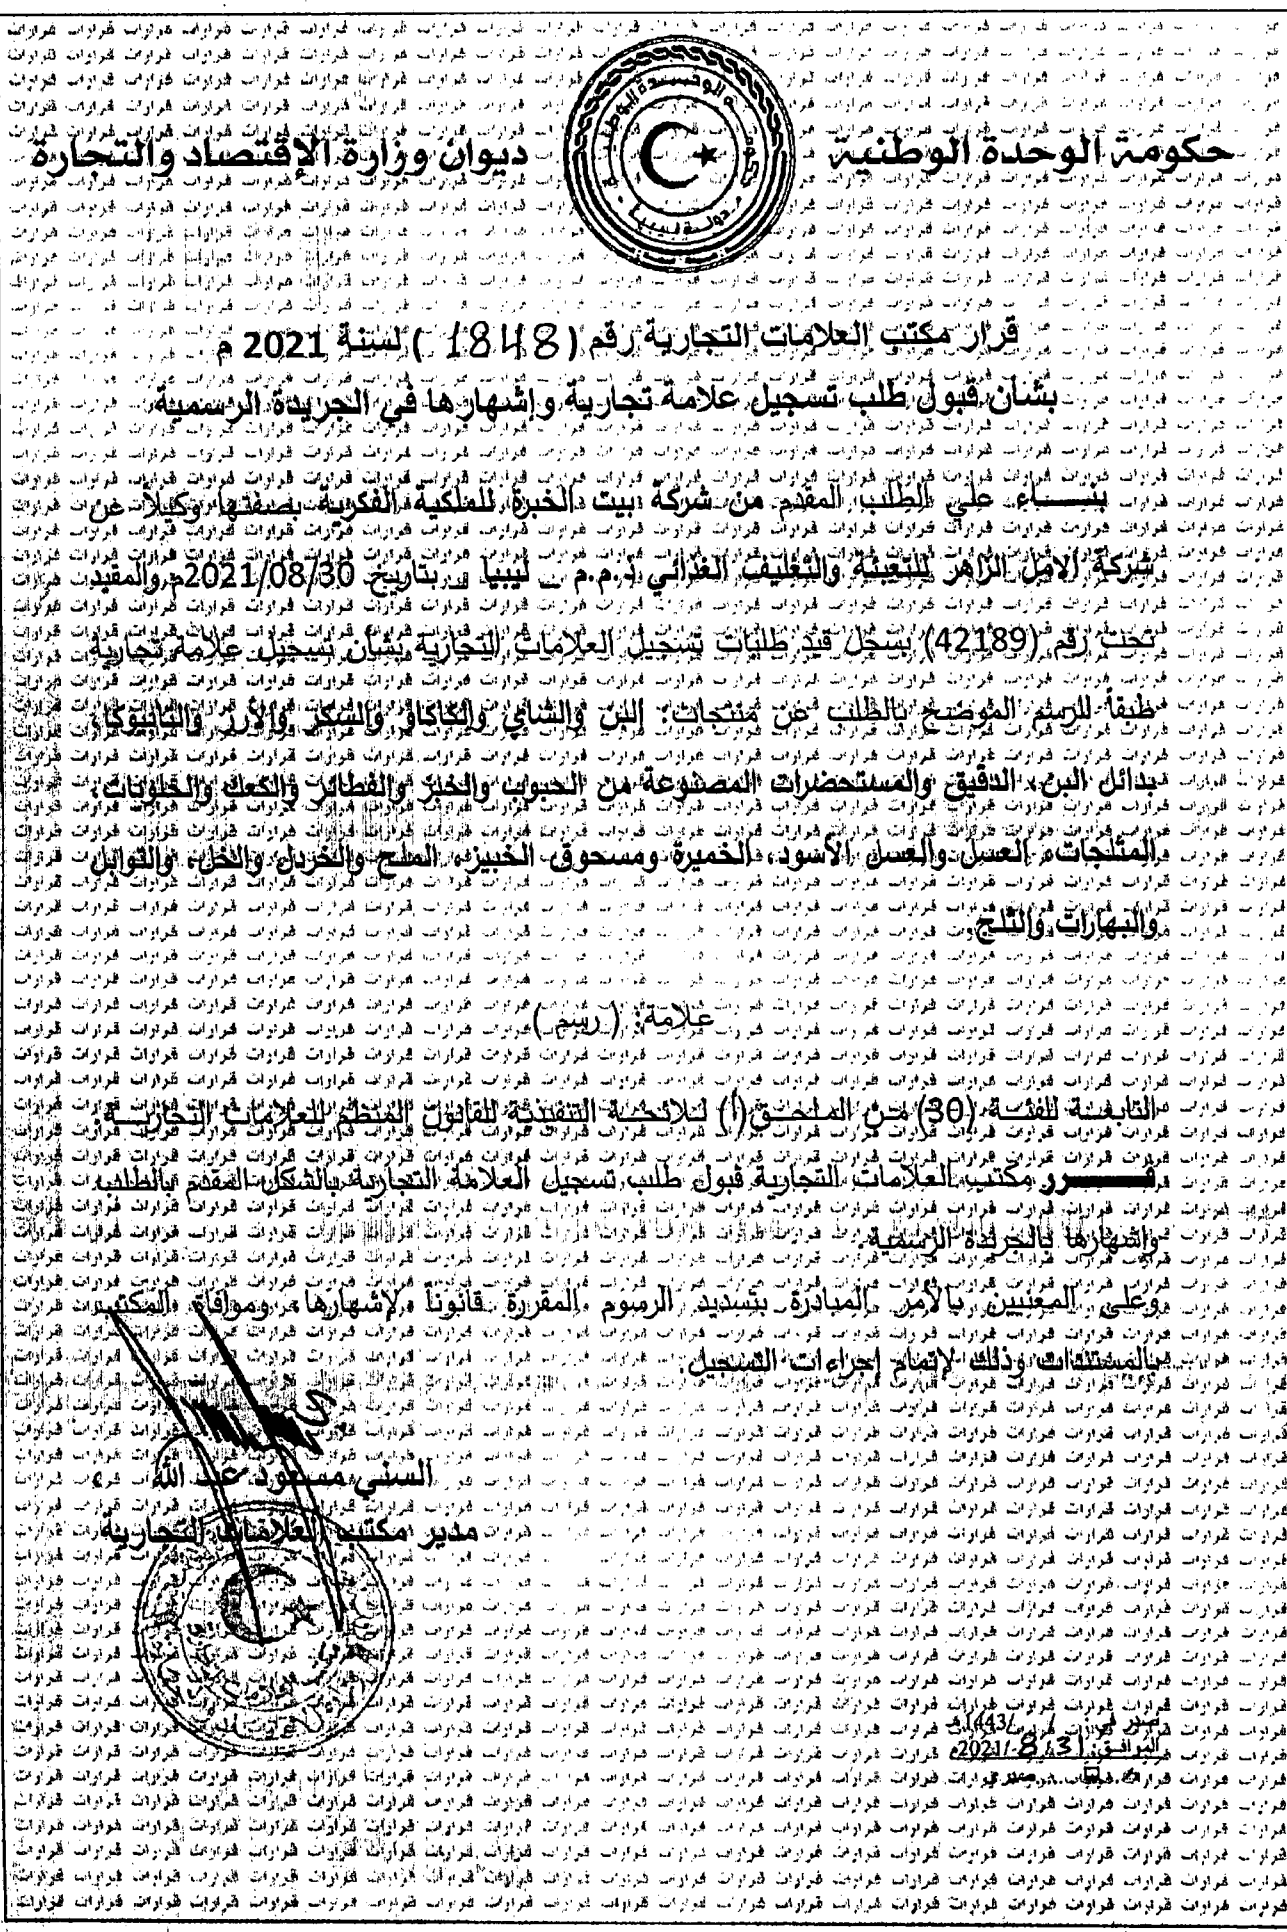 حكومة الوحدة الوطنية
ديوان وزارة الإقتصاد والتجارة
دولة ليبيا
قرار مكتب العلامات التجارية رقم ( 1848 ) لسنة 2021 م
بشأن قبول طلب تسجيل علامة تجارية وإشهارها في الجريدة الرسمية
بنـــــاء علي الطلب المقدم من شركة بيت الخبرة للملكية الفكرية بصفتها وكيلاً عن
شركة الامل الزاهر للتعبئة والتغليف الغذائي ذ.م.م _ ليبيا _ بتاريخ 2021/08/30م والمقيد
تحت رقم (42189) بسجل قيد طلبات تسجيل العلامات التجارية بشأن تسجيل علامة تجارية
طبقاً للرسم الموضح بالطلب عن منتجات: البن والشاي والكاكاو والسكر والأرز والتابيوكا،
بدائل البن، الدقيق والمستحضرات المصنوعة من الحبوب والخبز والفطائر والكعك والحلويات،
المثلجات، العسل والعسل الأسود، الخميرة ومسحوق الخبيز، الملح والخردل والخل، والتوابل
والبهارات والثلج.
علامة: ( رسم )
التابعـة للفئـة (30) مـن الملحـق(أ) لـلائحـة التنفيذية للقانون المنظم للعلامات التجاريـة.
قـــــــرر مكتب العلامات التجارية قبول طلب تسجيل العلامة التجارية بالشكل المقدم بالطلب
وإشهارها بالجريدة الرسمية.
وعلى المعنيين بالأمر المبادرة بتسديد الرسوم المقررة قانوناً لإشهارها، وموافاة المكتب
بالمستندات وذلك لإتمام إجراءات التسجيل.
السني مسعود عبد الله
مدير مكتب العلامات التجارية
صدر في: / /1443هـ
الموافـق: 31/8/2021م